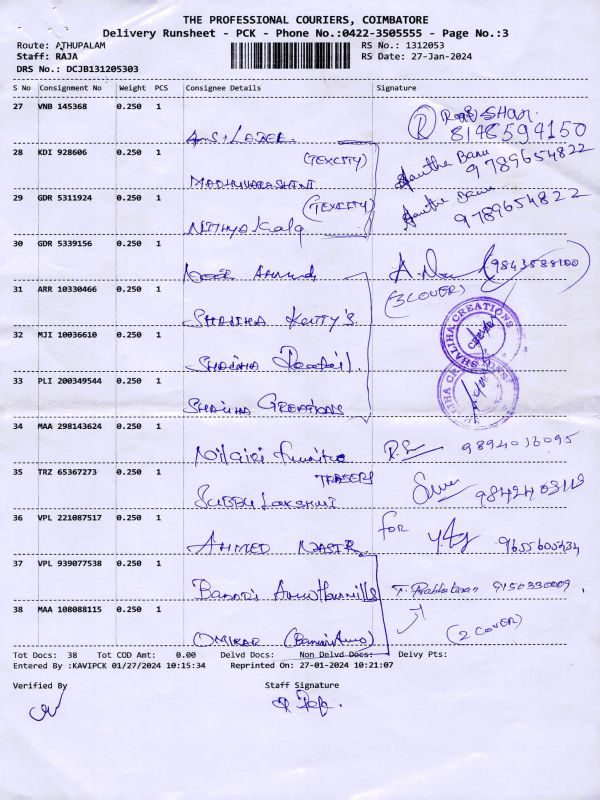 THE PROFESSIONAL COURIERS, COIMBATORE
Delivery Runsheet - PCK - Phone No.:0422-3505555 - Page No.:3
Route: ATHUPALAM RS No.: 1312053
Staff: RAJA RS Date: 27-Jan-2024
DRS No.: DCJB131205303
S No Consignment No Weight PCS Consignee Details Signature
27 VNB 145368 0.250 1
8198594150
28 KDI 928606 0.250 1 (TEXCITY) Banu
MADHUVARASHINI 9789654822
29 GDR 5311924 0.250 1 (TEXCITY) Banu
NITHYA Kala 9789654822
30 GDR 5339156 0.250 1
(9843588100)
31 ARR 10330466 0.250 1 (3 COVER)
SHALIHA KUTTY'S SHALIHA CREATIONS
32 MJI 10036610 0.250 1
SHALIHA
33 PLI 200349544 0.250 1
SHALIHA CREATIONS
34 MAA 298143624 0.250 1
Nilgiri 9894036095
35 TRZ 65367273 0.250 1 TRADERS
SUBBU LAKSHMI 9842403118
36 VPL 221087517 0.250 1 for
AHMED NASIR 9655605434
37 VPL 939077538 0.250 1
9150330009
38 MAA 108088115 0.250 1
OMIKAR (2 COVER)
Tot Docs: 38 Tot COD Amt: 0.00 Delvd Docs: Non Delvd Docs: Delvy Pts:
Entered By :KAVIPCK 01/27/2024 10:15:34 Reprinted On: 27-01-2024 10:21:07
Verified By Staff Signature